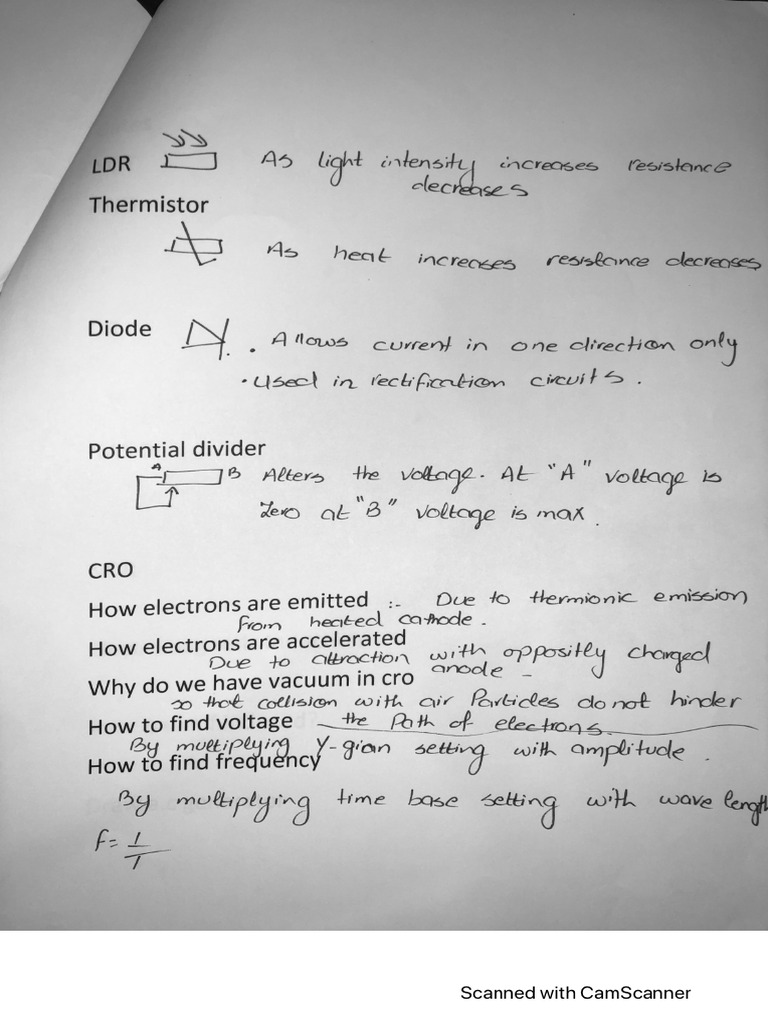 LDR As light intensity increases resistance
decreases
Thermistor
As heat increases resistance decreases
Diode . Allows current in one direction only
• Used in rectification circuits.
Potential divider
A B Alters the voltage. At "A" voltage is
Zero at "B" voltage is max.
CRO
How electrons are emitted :- Due to thermionic emission
from heated cathode.
How electrons are accelerated
Due to attraction with oppositly charged
anode -
Why do we have vacuum in cro
so that collision with air Particles do not hinder
the Path of electrons.
How to find voltage
By multiplying Y-gian setting with amplitude.
How to find frequency
By multiplying time base setting with wave length
f= 1/T
Scanned with CamScanner